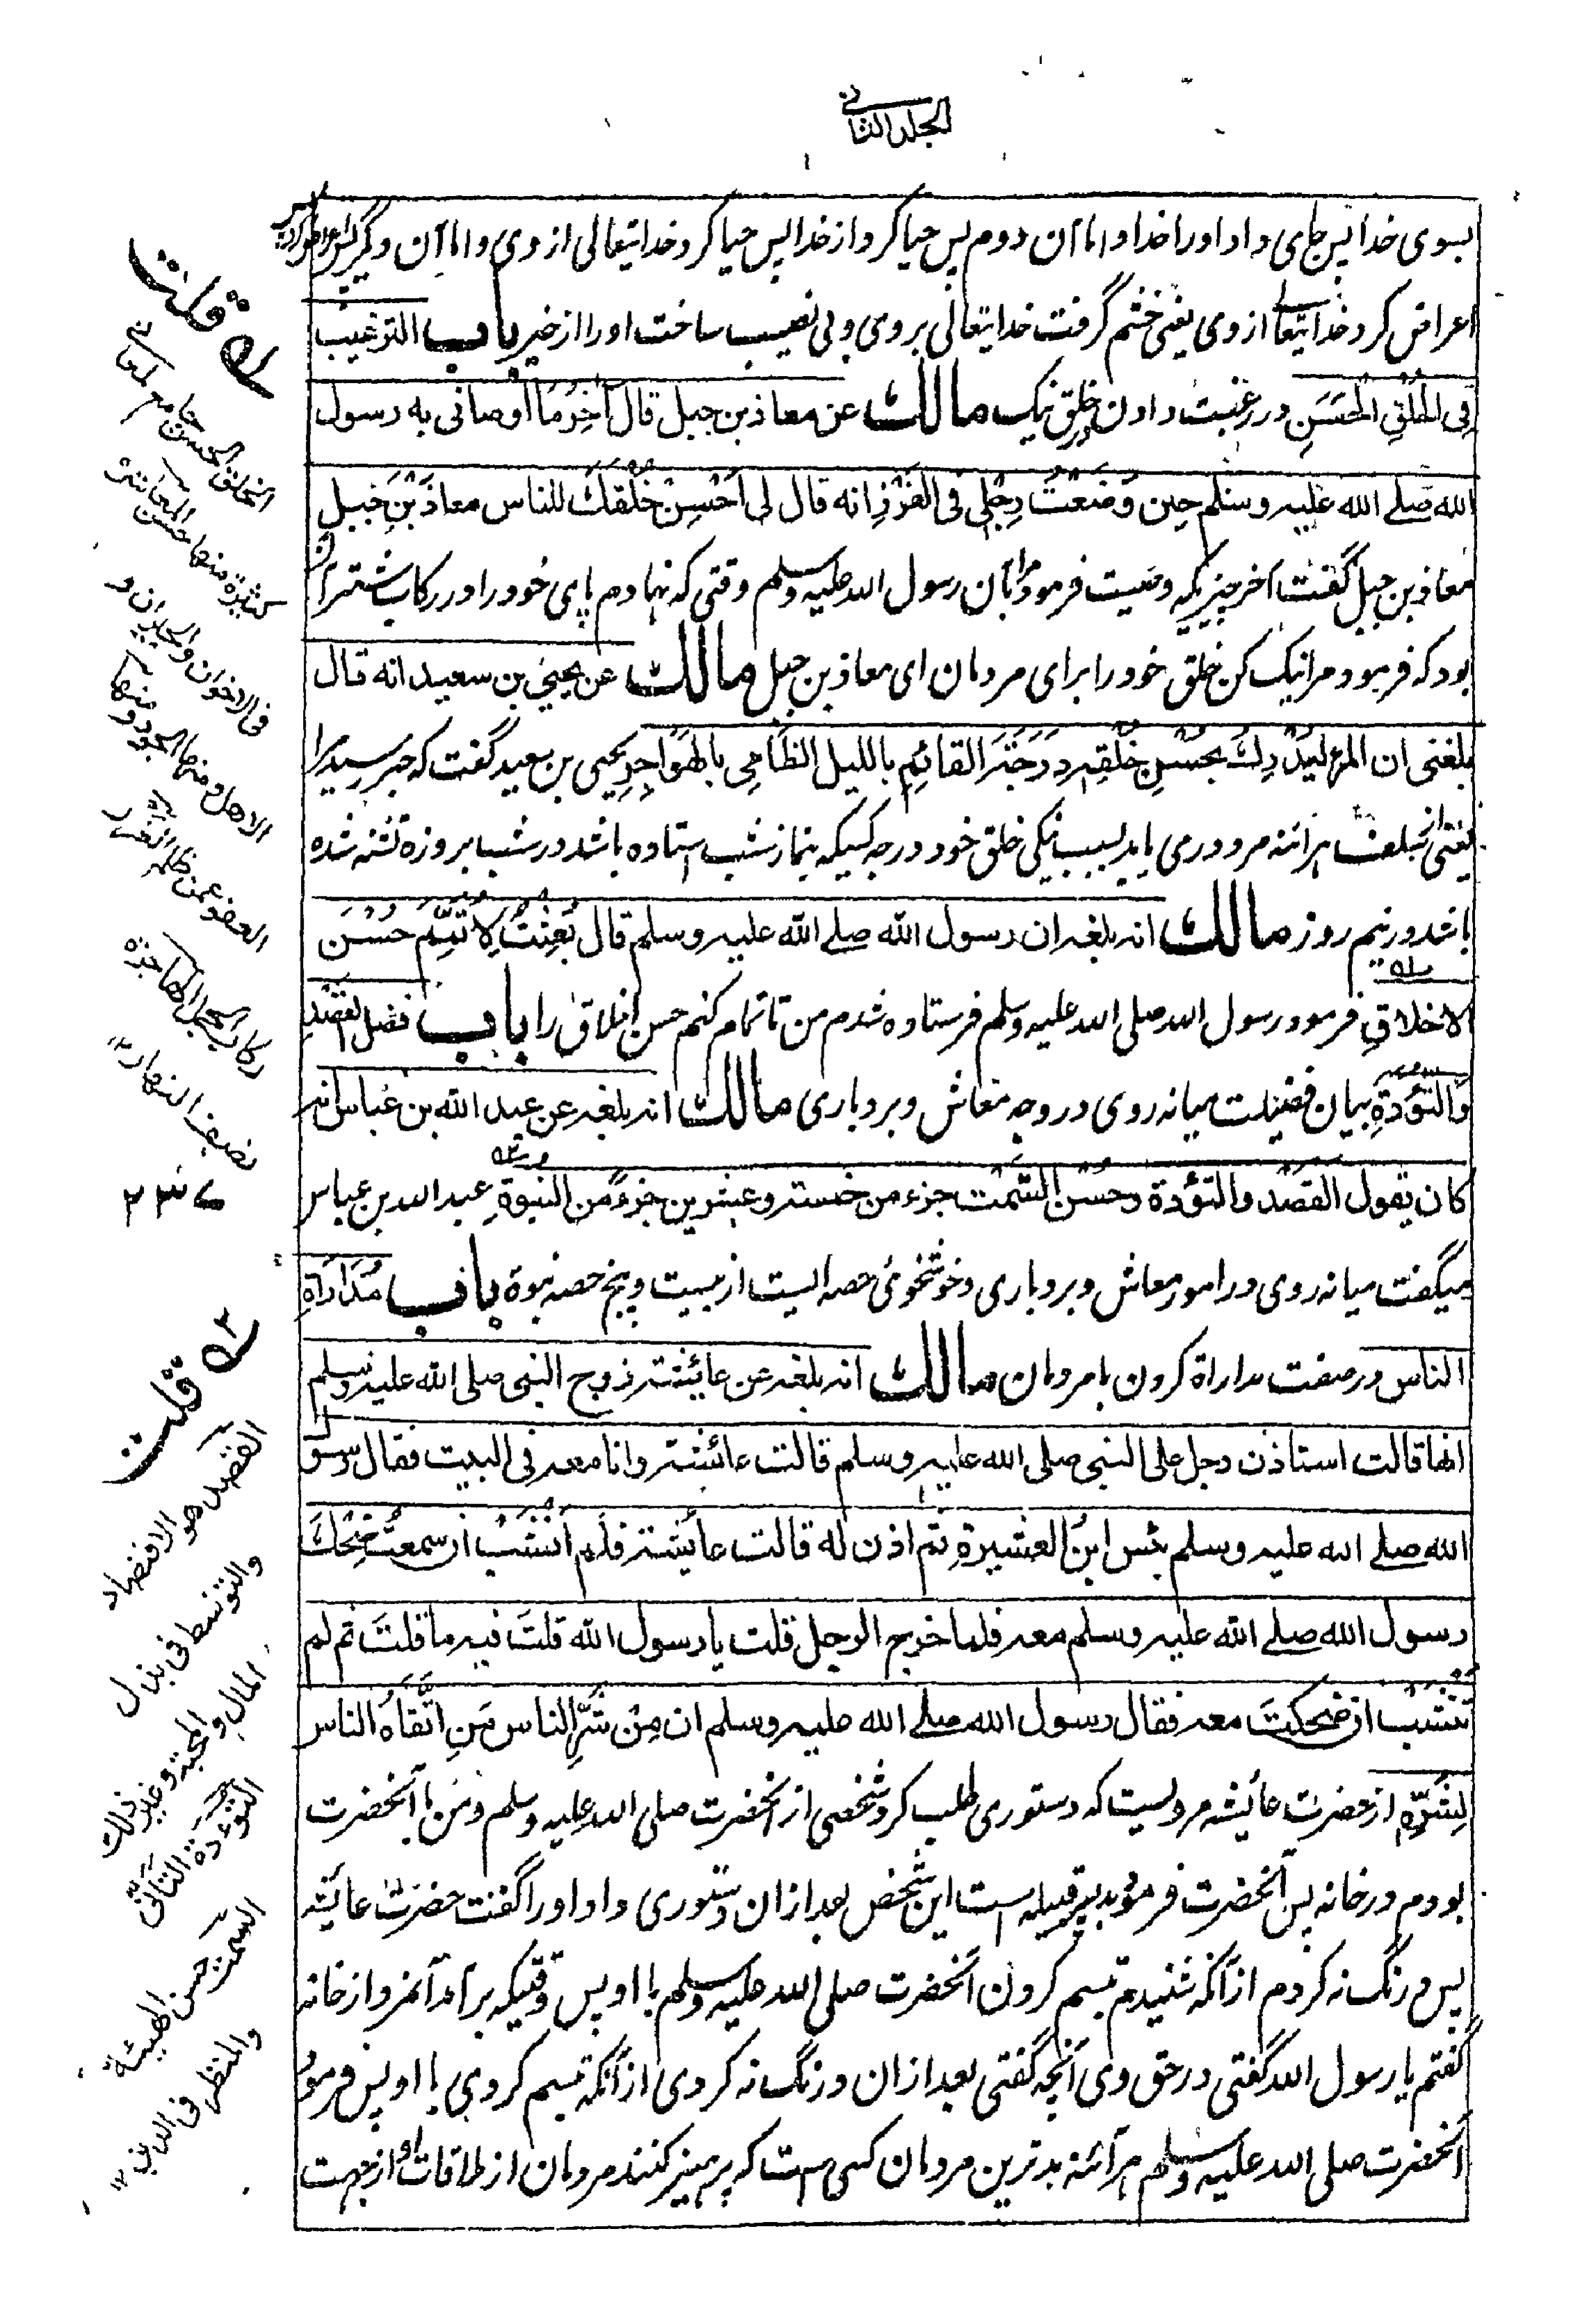 الجلد الثانی
بسوی خدا پس جای داد اورا خدا و اما آن دوم پس حیا کرد از خدا پس حیا کرد خدایتعالی از وی و اما آن دگر پس اعراض کرد پس
اعراض کرد خدایتعالے از وی یعنی خشم گرفت خدایتعالی بر وی و بی نصیب ساخت اورا از خیر باب الترغیب
فِی الخُلُقِ الحَسَنِ در رغبت دادن خلق نیک مالك عن معاذ بن جبل قال آخِرُ مَا اوصانی به رسول
الله صلے الله علیه وسلم حین وَضَعْتُ رِجْلِی فی الغَرْزِ انه قال لی اَحْسِنْ خُلُقَكَ للناس معاذَ بْنَ جَبَلٍ
معاذ بن جبل گفت آخر چیزیکه وصیت فرمود مرا بآن رسول الله صلی الله علیه وسلم وقتی که نهادم پای خود را در رکاب شتر آن
بود که فرمود مرا نیک کن خلق خود را برای مردمان ای معاذ بن جبل مالك عن یحیی بن سعید انه قال
بلغنی ان المرء لَیُدْرِكُ بحُسْنِ خُلُقِه دَرَجَةَ القائِمِ باللیل الظَامِی بالهَوَاجِرِ یحیی بن سعید گفت که خبر رسید مرا
یعنی از نبلغت هر آئنه مرد در می یابد بسبب نیکی خلق خود درجه کسیکه بنماز شب استاده باشد در شب بروزه تشنه شده
باشد در نیم روز مالك انه بلغه ان رسول الله صلے الله علیه وسلم قال بُعِثْتُ لِاُتَمِّمَ حُسْنَ
الاخلاقِ فرمود رسول الله صلی الله علیه وسلم فرستاده شدم من تا تمام کنم حسن اخلاق را باب فضل القصد
وَالتُّؤَدَةِ بیان فضیلت میانه روی در وجه معاش و بردباری مالك انه بلغه عن عبد الله بن عباس انه
کان یقول القَصْد والتؤَدة وحُسْن السَّمْت جزء من خمسة وعشرین جزءً من النبوةِ عبد الله بن عباس
میگفت میانه روی در امور معاش و بردباری و خوشخوئی حصه ایست از بیست و پنج حصه نبوة باب مُدَارَاةِ
الناس در صفت مداراة کردن با مردمان مالك انه بلغه عن عائشة زوج النبی صلی الله علیه وسلم
انها قالت استاذن رجل علی النبی صلی الله علیه وسلم قالت عائشة وانا معه فی البیت فقال رسول
الله صلے الله علیه وسلم بئس ابنُ العشیرةِ ثم اذن له قالت عائشة فلم اَنْشَبْ ان سمعتُ ضِحْكَ
رسول الله صلے الله علیه وسلم معه فلما خرج الرجل قلت یا رسول الله قلتَ فیه ما قلتَ ثم لم
تَنْشَبْ ان ضحکتَ معه فقال رسول الله صلے الله علیه وسلم ان مِنْ شَرِّ الناس مَنِ اتَّقَاهُ الناس
لِشَرِّهِ از حضرت عائیشه مرویست که دستوری طلب کرد شخصی از آنحضرت صلی الله علیه وسلم ومن با آنحضرت
بودم در خانه پس آنحضرت فرمود بد پسر قبیله است این شخص بعد ازان دستوری داد اورا گفت حضرت عائیشه
پس درنگ نه کردم از آنکه شنیدم تبسم کردن آنحضرت صلی الله علیه وسلم با او پس وقتیکه برآمد آنمرد از خانه
گفتم یا رسول الله گفتی در حق وی آنچه گفتی بعد ازان درنگ نه کردی از آنکه تبسم کردی با او پس فرمود
آنحضرت صلی الله علیه وسلم هر آئنه بدترین مردمان کسی است که پرهیز کنند مردمان از ملاقات او از جهت
له قلت
الخلق الحسن جامع لمعان
کثیرة منها حسن المعاشرة
فی الاخوان والجیران و
الاهل ومنها الجود ومنها
العفو عمن ظلم
الهاجرة
نصف النهار
۲۳۷
۲ه قلت
القصد هو الاقتصاد
والتوسط فی بذل
المال والمحبة وغیر ذلك
التؤدة التأنی
السمت حسن الهیئة
والمنظر فی الدین ۱۲